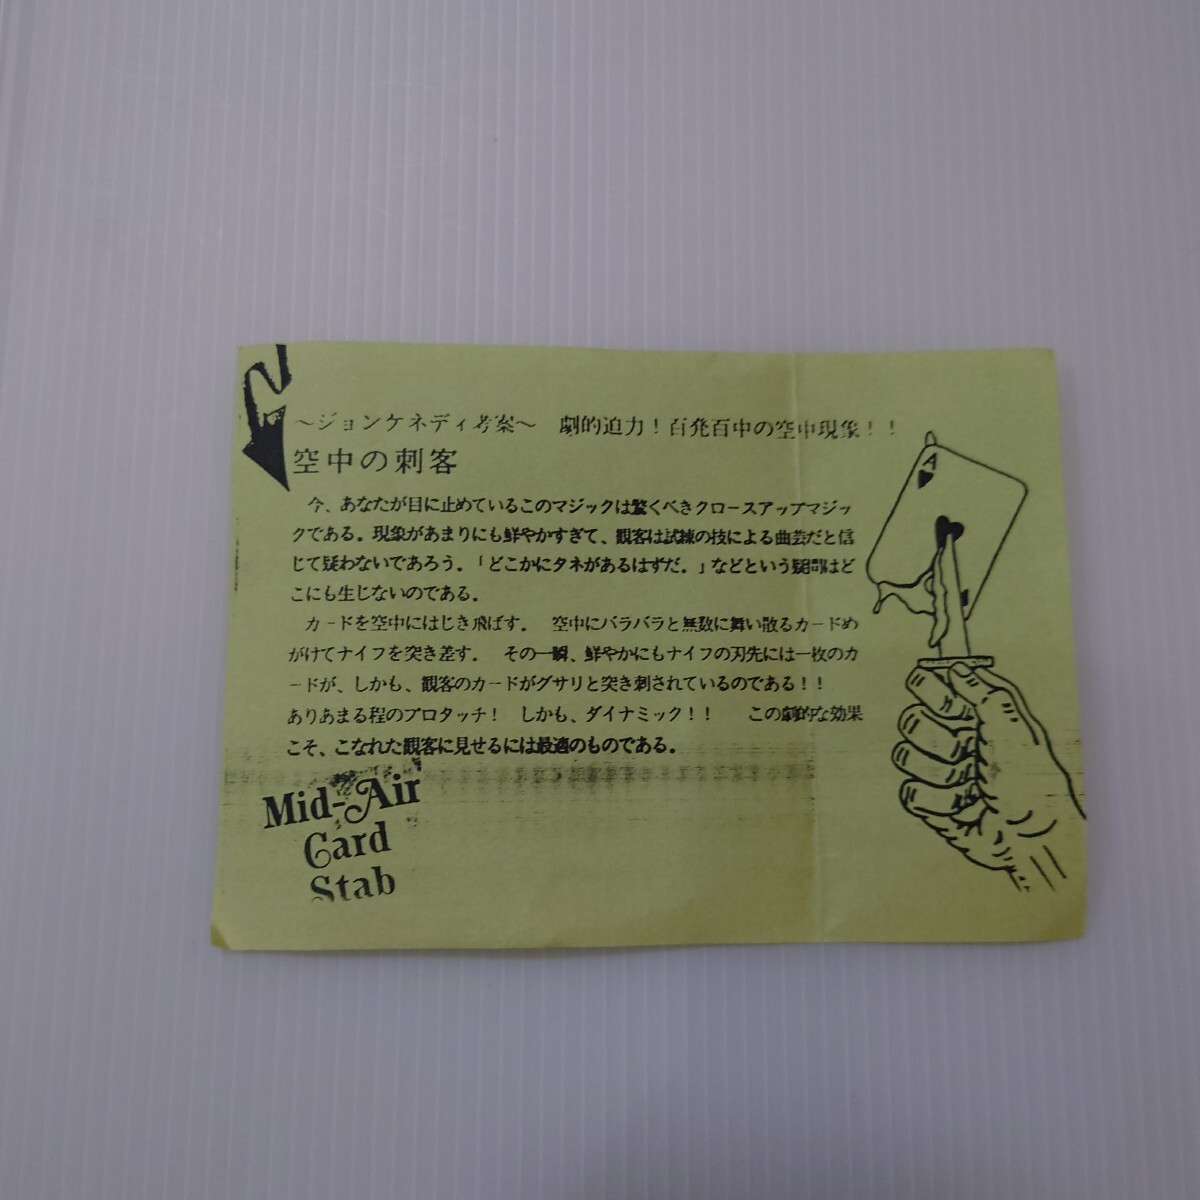 ～ジョンケネディ考案～　劇的迫力！百発百中の空中現象！！
空中の刺客
今、あなたが目に止めているこのマジックは驚くべきクロースアップマジッ
クである。現象があまりにも鮮やかすぎて、観客は試練の技による曲芸だと信
じて疑わないであろう。「どこかにタネがあるはずだ。」などという疑問はど
こにも生じないのである。
カードを空中にはじき飛ばす。　空中にバラバラと無数に舞い散るカードめ
がけてナイフを突き差す。　その一瞬、鮮やかにもナイフの刃先には一枚のカ
ードが、しかも、観客のカードがグサリと突き刺されているのである！！
ありあまる程のプロタッチ！　しかも、ダイナミック！！　この劇的な効果
こそ、こなれた観客に見せるには最適のものである。
Mid-Air
Card
Stab
A